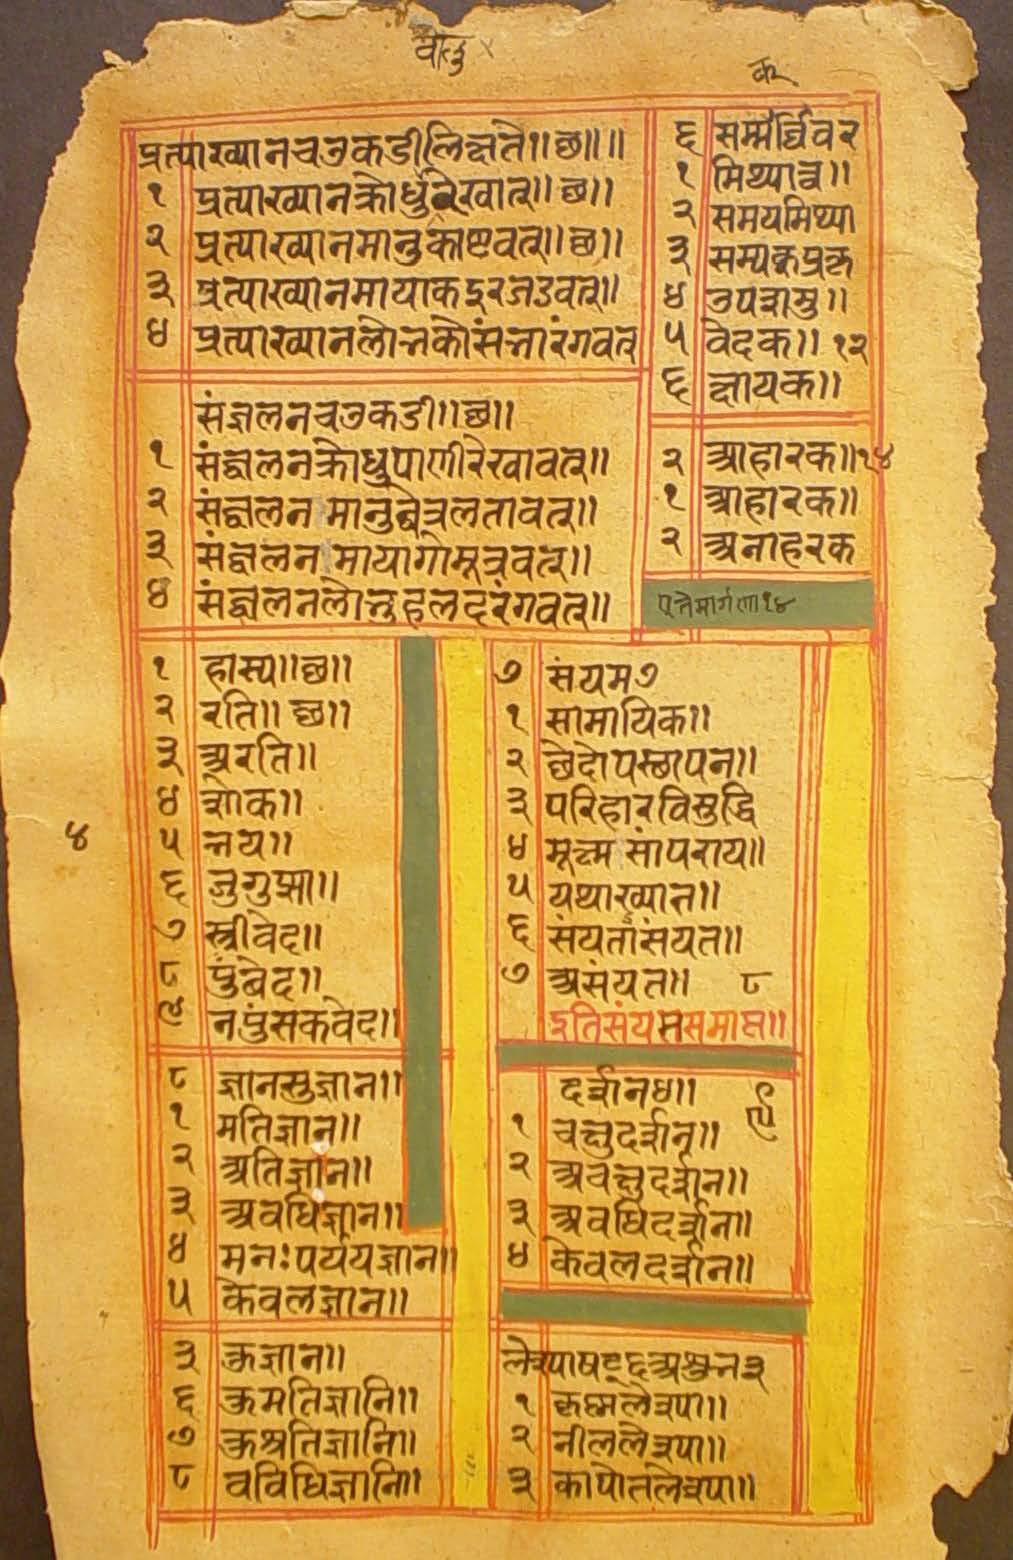 प्रत्याख्यानचउकडीलिख्यते॥छ॥॥
१ प्रत्याख्यानक्रोधुरेखात्॥छ॥
२ प्रत्याख्यानमानुकाष्टवत्॥छ॥
३ प्रत्याख्यानमाया
४ प्रत्याख्यानलोभकोसंभारंगवत
संज्वलनचउकडी॥छ॥
१ संज्वलनक्रोधुपाणीरेखावत्॥
२ संज्वलनमानुवेत्रलतावत्॥
३ संज्वलनमायागोमूत्रवत्॥
४ संज्वलनलोभुहलदरंगवत्॥
१ हास्य॥छ॥
२ रति॥छ॥
३ अरति॥
४ शोक॥
५ भय॥
६ जुगुप्सा॥
७ स्त्रीवेद॥
८ पुंवेद॥
९ नपुंसकवेद॥
८ ज्ञानसुज्ञान॥
१ मतिज्ञान॥
२ अतिज्ञान॥
३ अवधिज्ञान॥
४ मनःपर्ययज्ञान॥
५ केवलज्ञान॥
३ कुज्ञान॥
६ कुमतिज्ञानि॥
७ कुश्रतिज्ञानि॥
८ वविधिज्ञानि॥
४
६
१ मिथ्यात्व॥
२ समयमिथ्या
३
४ उपशमु॥
५ वेदक॥ १२
६ क्षायक॥
२ आहारक॥१४
१ आहारक॥
२ अनाहरक
मार्गणा१४
७ संयम७
१ सामायिक॥
२ छेदोपस्छापन॥
३ परिहारविसुद्धि
४ सूक्ष्मसांपराय॥
५ यथाख्यात॥
६ संयतासंयत॥
७ असंयत॥ ८
इतिसंयमसमाप्त॥
दर्शन४॥ ९
१ चक्षुदर्शन॥
२ अचक्षुदर्शन॥
३ अवधिदर्शन॥
४ केवलदर्शन॥
लेश्याषट्६अशुभ३
१ कृष्णलेश्या॥
२ नीललेश्या॥
३ कापोतलेश्या॥